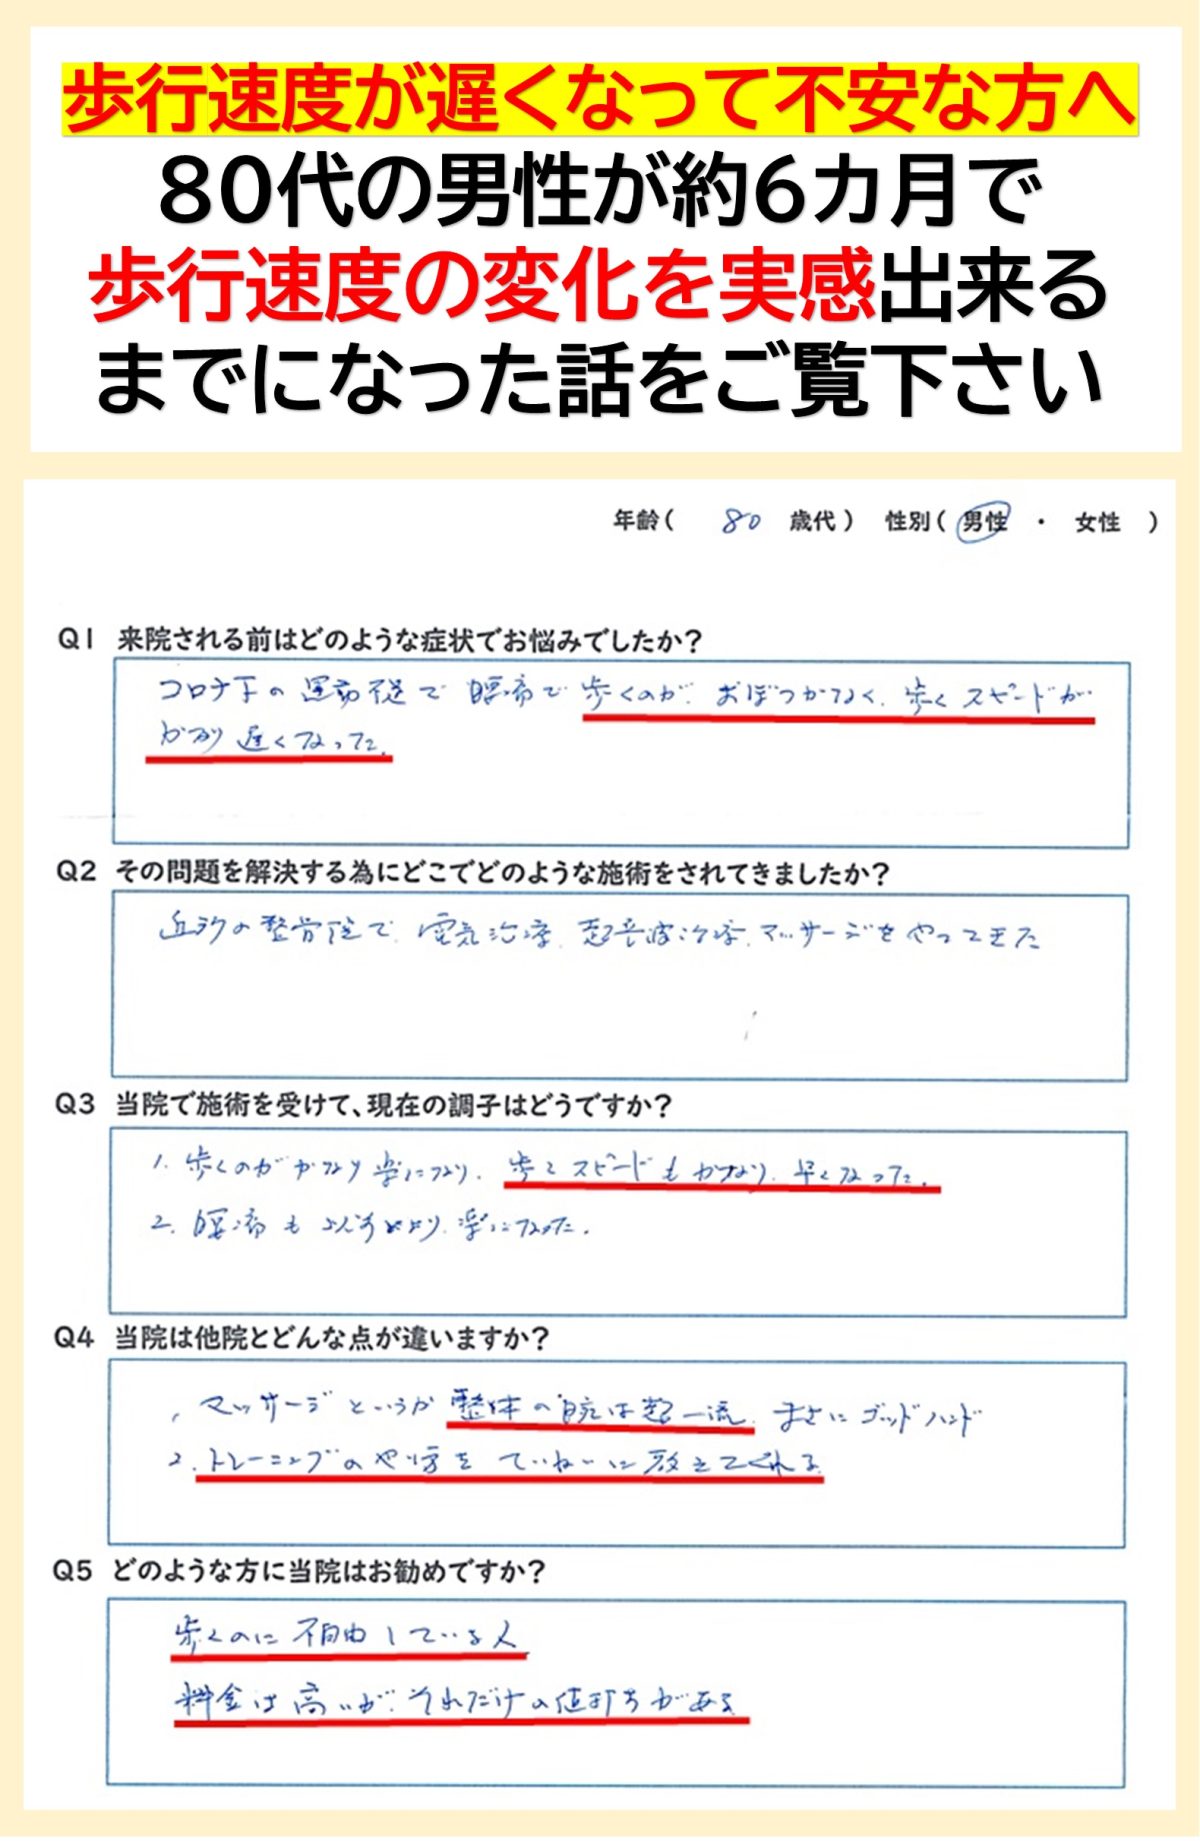 歩行速度が遅くなって不安な方へ
80代の男性が約6カ月で
歩行速度の変化を実感出来る
までになった話をご覧下さい
年齢( 80 歳代) 性別( 男性 ・ 女性 )
Q1 来院される前はどのような症状でお悩みでしたか?
コロナ下の運動不足で 腰痛で 歩くのが、おぼつかなく、歩くスピードが
かなり 遅くなった。
Q2 その問題を解決する為にどこでどのような施術をされてきましたか?
近所の整骨院で、電気治療、超音波治療、マッサージをやってきた
Q3 当院で施術を受けて、現在の調子はどうですか?
1. 歩くのが かなり 楽になり、歩くスピードも かなり、早くなった。
2. 腰痛も 以前より、楽になった。
Q4 当院は他院とどんな点が違いますか?
、マッサージというか 整体の腕は超一流、まさにゴッドハンド
2. トレーニングのやり方を ていねいに教えてくれる。
Q5 どのような方に当院はお勧めですか?
歩くのに 不自由している人
料金は高いが、それだけの値打ちがある